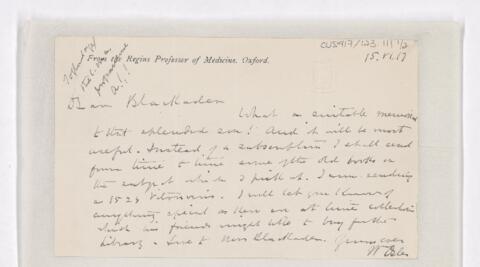 CUS417/123.11/1/2
15.VI.17
From the Regius Professor of Medicine, Oxford.
Dear Blackader
What a suitable memorial
to that splendid son! And it will be most
useful. Instead of a subscription I shall send
from time to time some of the old books on
the subject which I pick up. I am sending
a 1528 Vitruvius. I will let you know of
anything special as there are at times collections
which his friends might like to buy for the
Library. Love to Miss Blackader. Yours ever
W Osler